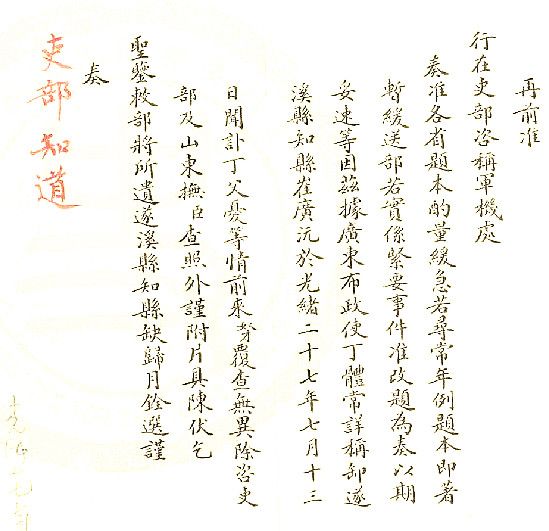 再前准
行在吏部咨稱軍機處
奏准各省題本酌量緩急若尋常年例題本即著
暫緩送部若實係緊要事件准改題為奏以期
妥速等因茲據廣東布政使丁體常詳稱卸遂
溪縣知縣崔廣沅於光緒二十七年七月十三
日聞訃丁父憂等情前來覆查無異除咨吏
部及山東撫臣查照外謹附片具陳伏乞
聖鑒敕部將所遺遂溪縣知縣缺歸月銓選謹
奏
吏部知道